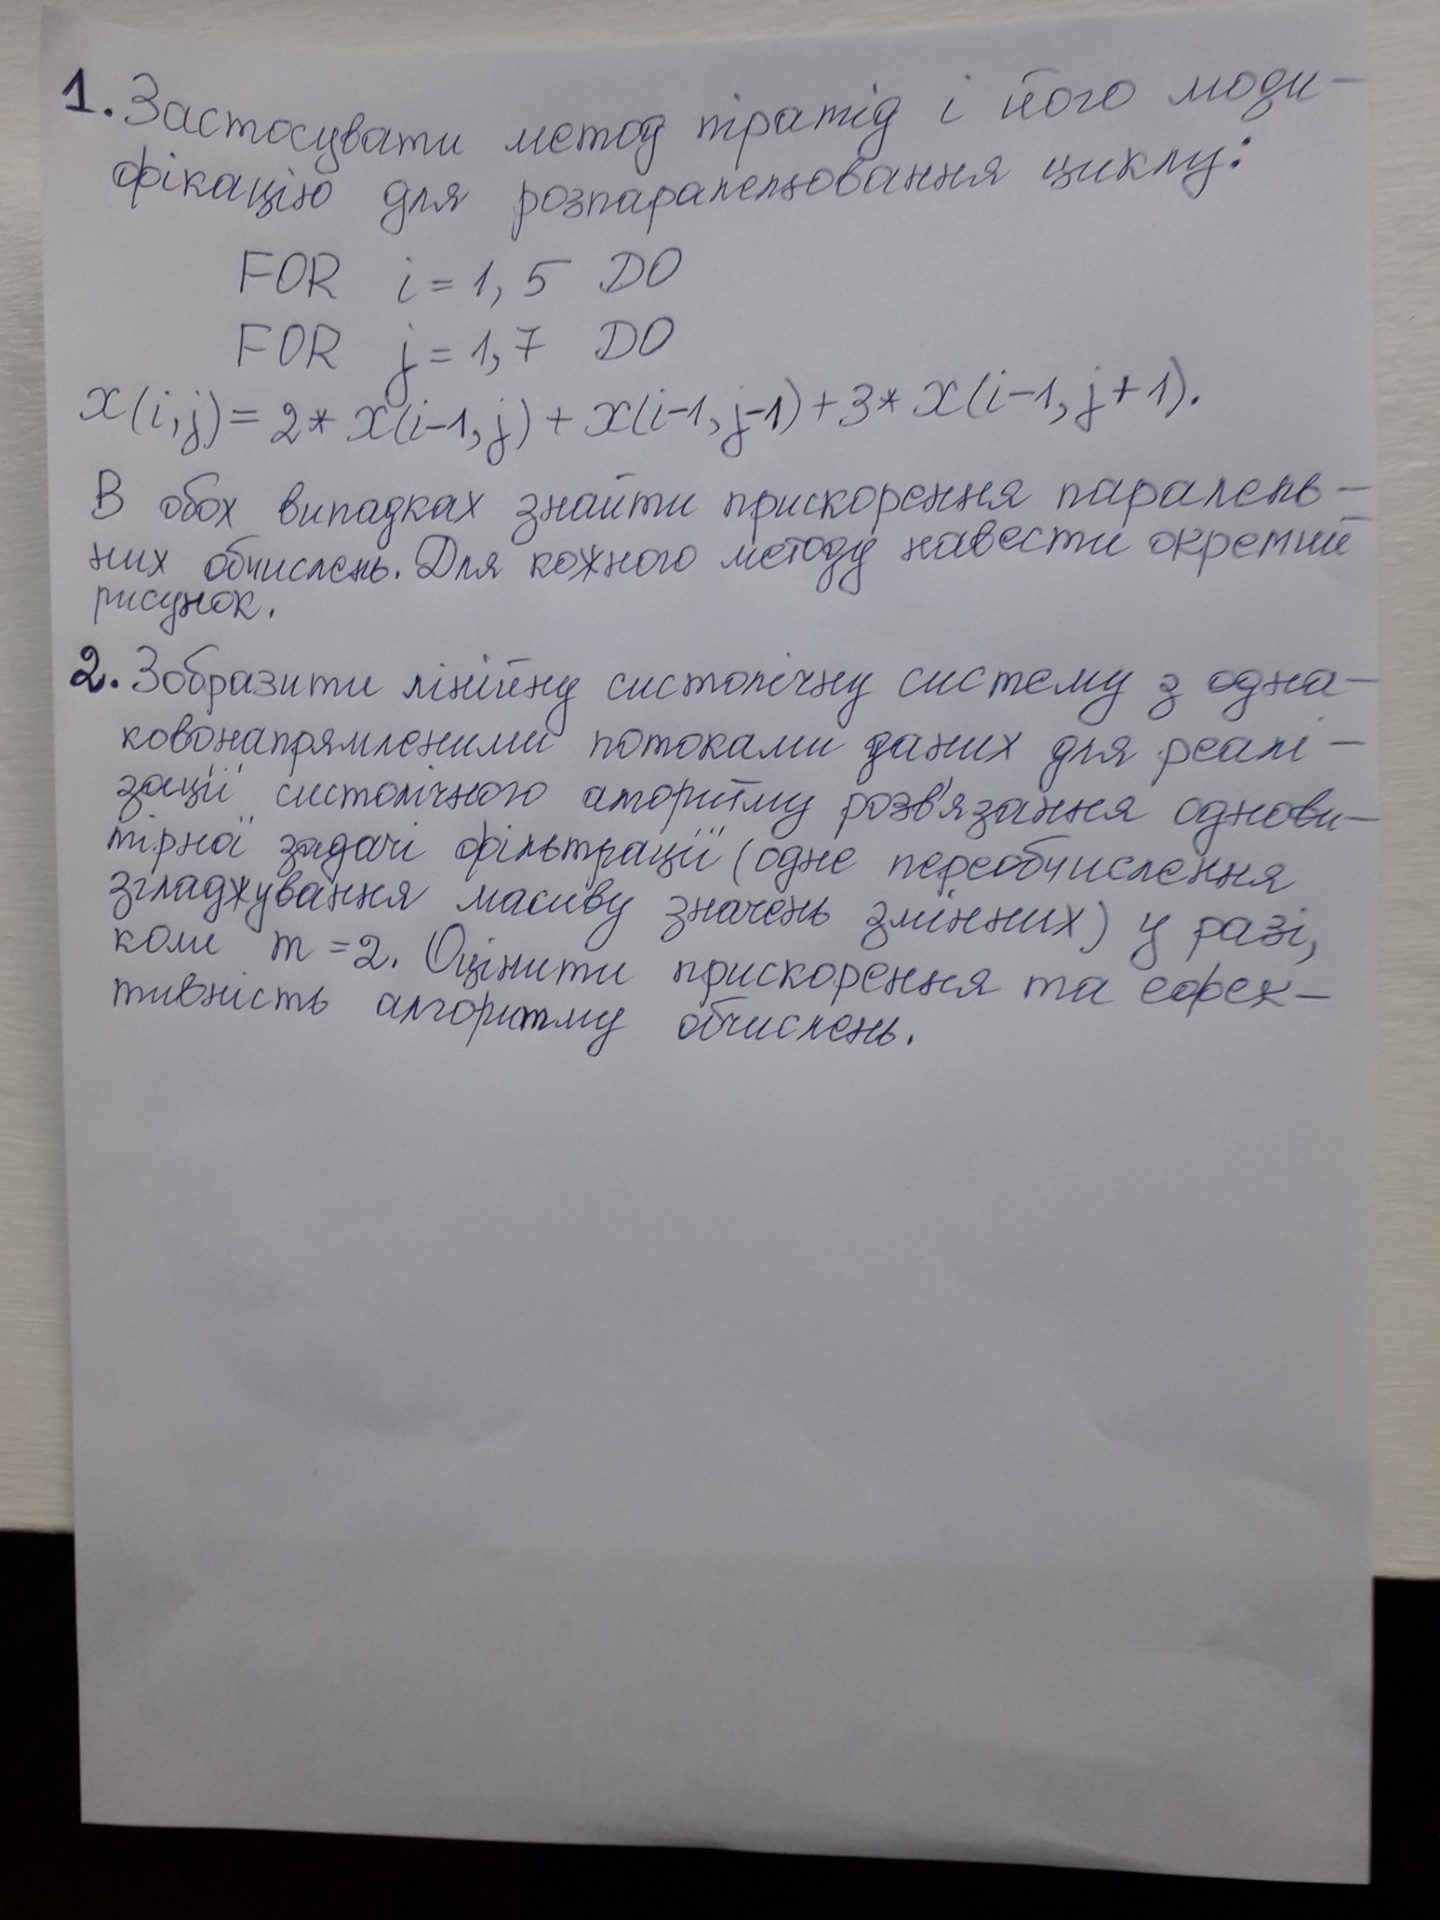 1. Застосувати метод пірамід і його моди-
фікацію для розпаралелювання циклу:
FOR i = 1, 5 DO
FOR j = 1, 7 DO
x(i,j) = 2* x(i-1, j) + x(i-1, j-1) + 3* x(i-1, j+1).
В обох випадках знайти прискорення паралель-
них обчислень. Для кожного методу навести окремий
рисунок.
2. Зобразити лінійну систолічну систему з одна-
ковонапрямленими потоками даних для реалі-
зації систолічного алгоритму розв'язання однови-
мірної задачі фільтрації (одне переобчислення
згладжування масиву значень змінних) у разі,
коли m = 2. Оцінити прискорення та ефек-
тивність алгоритму обчислень.